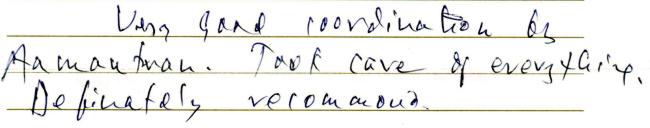 Very good coordination by
Aamantran. Took care of everything.
Definately recommond.